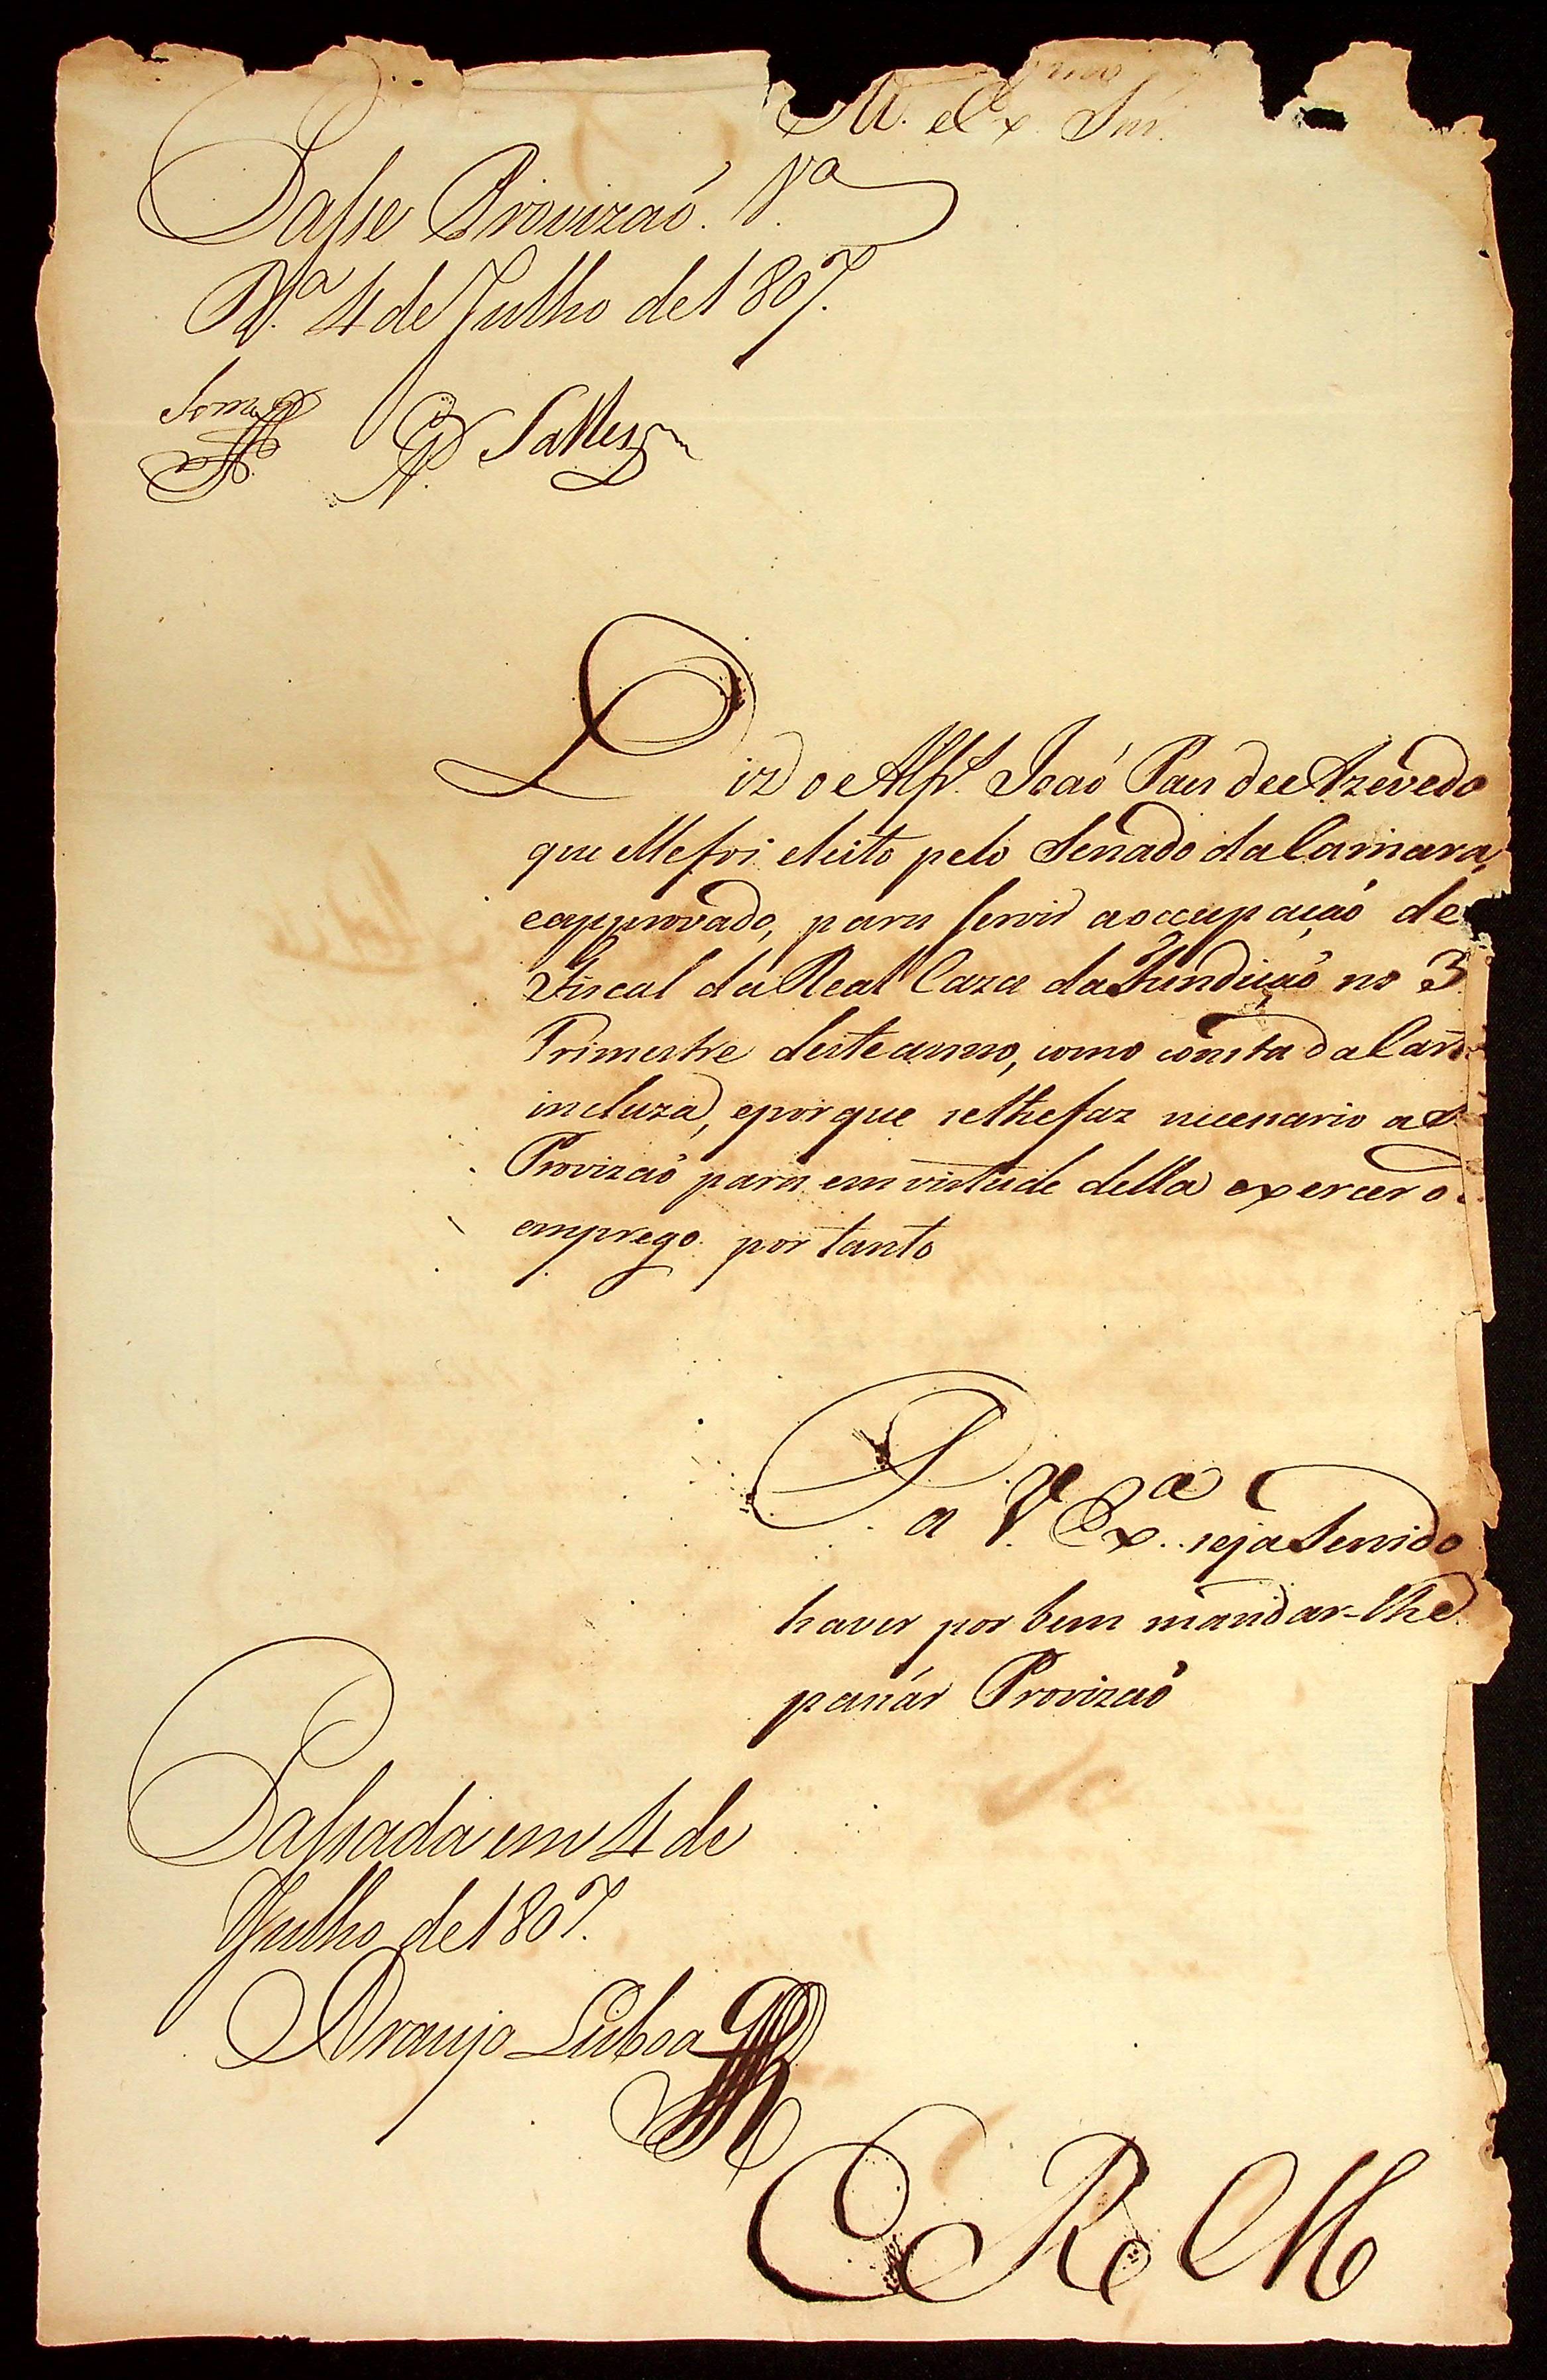 M. Ex.mo Snr.
Passe Provizaó. V.a
V.a 4 de Julho de 1807.
Salles
Diz o Alfs. Joaó Paes de Azevedo
que elle foi eleito pelo Senado da Camara,
e approvado, para servir a occupaçaó de
Fiscal da Real Caza da Fundiçaó no 3
Trimestre deste anno, como consta da Carta
incluza, e porque se lhe faz necessario a
Provizaó para em virtude della exercer o
emprego por tanto
P.
a V. Ex.a seja Servido
haver por bem mandar-lhe
passár Provizaó
Passada em 4 de
Julho de 1807.
Araujo Lisboa
E R M